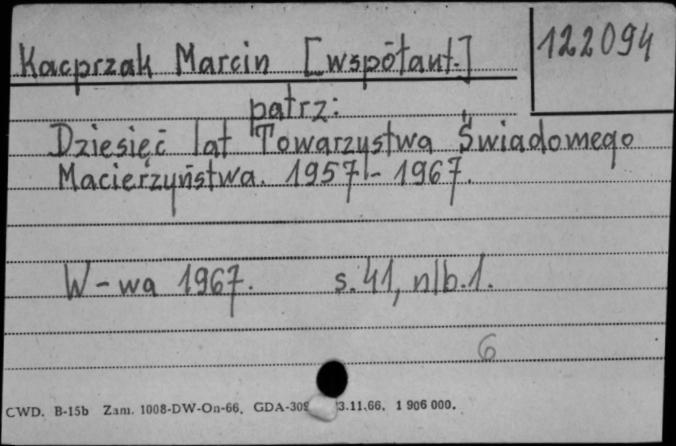 Kacprzak Marcin [współaut.]
122094
patrz:
Dziesięć lat Towarzystwa Świadomego
Macierzyństwa. 1957-1967.
W-wa 1967. s. 41, nlb. 1.
6
CWD. B-15b Zam. 1008-DW-On-66. GDA-309 3.11.66. 1 906 000.